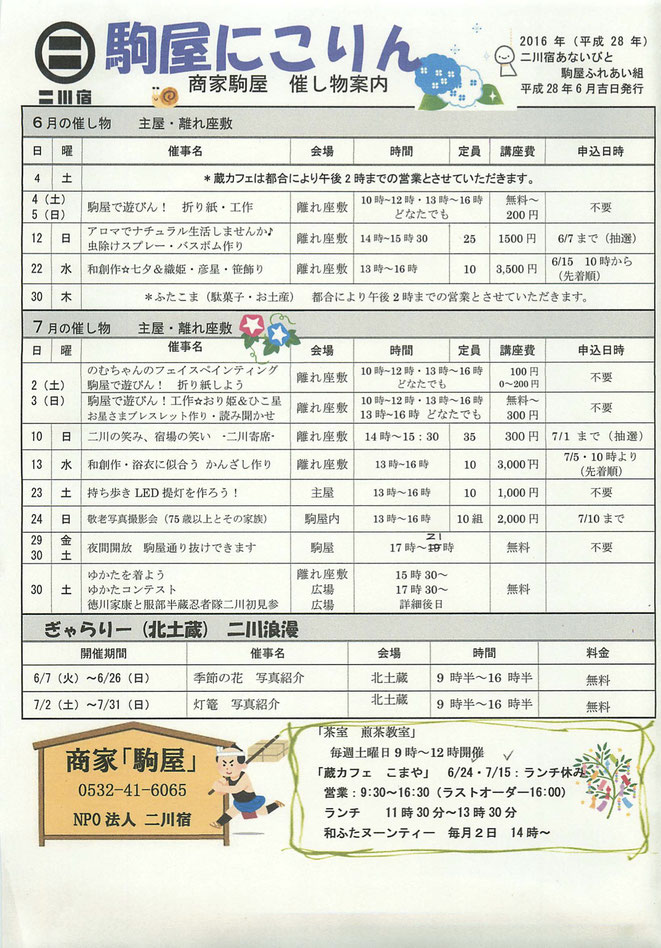 駒屋にこりん
商家駒屋 催し物案内
二川宿
2016 年（平成 28 年）
二川宿あないびと
駒屋ふれあい組
平成 28 年 6 月吉日発行
6 月の催し物 主屋・離れ座敷
日 曜 催事名 会場 時間 定員 講座費 申込日時
4 土 ＊蔵カフェは都合により午後 2 時までの営業とさせていただきます。
4（土）
5（日） 駒屋で遊びん！ 折り紙・工作 離れ座敷 10 時~12 時・13 時~16 時 どなたでも 無料～200 円 不要
12 日 アロマでナチュラル生活しませんか♪
虫除けスプレー・バスボム作り 離れ座敷 14 時~15 時 30 25 1500 円 6/7 まで（抽選）
22 水 和創作☆七夕＆織姫・彦星・笹飾り 離れ座敷 13 時～16 時 10 3,500 円 6/15 10 時から
（先着順）
30 木 ＊ふたこま（駄菓子・お土産） 都合により午後 2 時までの営業とさせていただきます。
7 月の催し物 主屋・離れ座敷
日 曜 催事名 会場 時間 定員 講座費 申込日時
2（土）
3（日） のむちゃんのフェイスペインティング
駒屋で遊びん！ 折り紙しよう 離れ座敷 10 時~12 時・13 時~16 時
どなたでも 100 円
0～200 円 不要
駒屋で遊びん！工作☆おり姫＆ひこ星
お星さまブレスレット作り・読み聞かせ 離れ座敷 10 時~12 時・13 時~16 時
13 時~16 時 どなたでも 無料～
300 円 不要
10 日 二川の笑み、宿場の笑い -二川寄席- 離れ座敷 14 時～15：30 35 300 円 7/1 まで（抽選）
13 水 和創作・浴衣に似合う かんざし作り 離れ座敷 13 時~16 時 10 3,000 円 7/5・10 時より
（先着順）
23 土 持ち歩き LED 提灯を作ろう！ 主屋 13 時～16 時 10 1,000 円 不要
24 日 敬老写真撮影会（75 歳以上とその家族） 駒屋内 13 時～16 時 10 組 2,000 円 7/10 まで
29 金
30 土 夜間開放 駒屋通り抜けできます 駒屋 17 時～21時 無料 不要
30 土 ゆかたを着よう 離れ座敷 15 時 30～ 無料
ゆかたコンテスト 広場 17 時 30～
徳川家康と服部半蔵忍者隊二川初見参 広場 詳細後日
ぎゃらりー（北土蔵） 二川浪漫
開催期間 催事名 会場 時間 料金
6/7（火）～6/26（日） 季節の花 写真紹介 北土蔵 9 時半～16 時半 無料
7/2（土）～7/31（日） 灯篭 写真紹介 北土蔵 9 時半～16 時半 無料
商家「駒屋」
0532-41-6065
NPO 法人 二川宿
「茶室 煎茶教室」
毎週土曜日 9 時～12 時開催
「蔵カフェ こまや」 6/24・7/15：ランチ休み
営業：9:30～16:30（ラストオーダー16:00）
ランチ 11 時 30 分～13 時 30 分
和ふたヌーンティー 毎月２日 14 時～